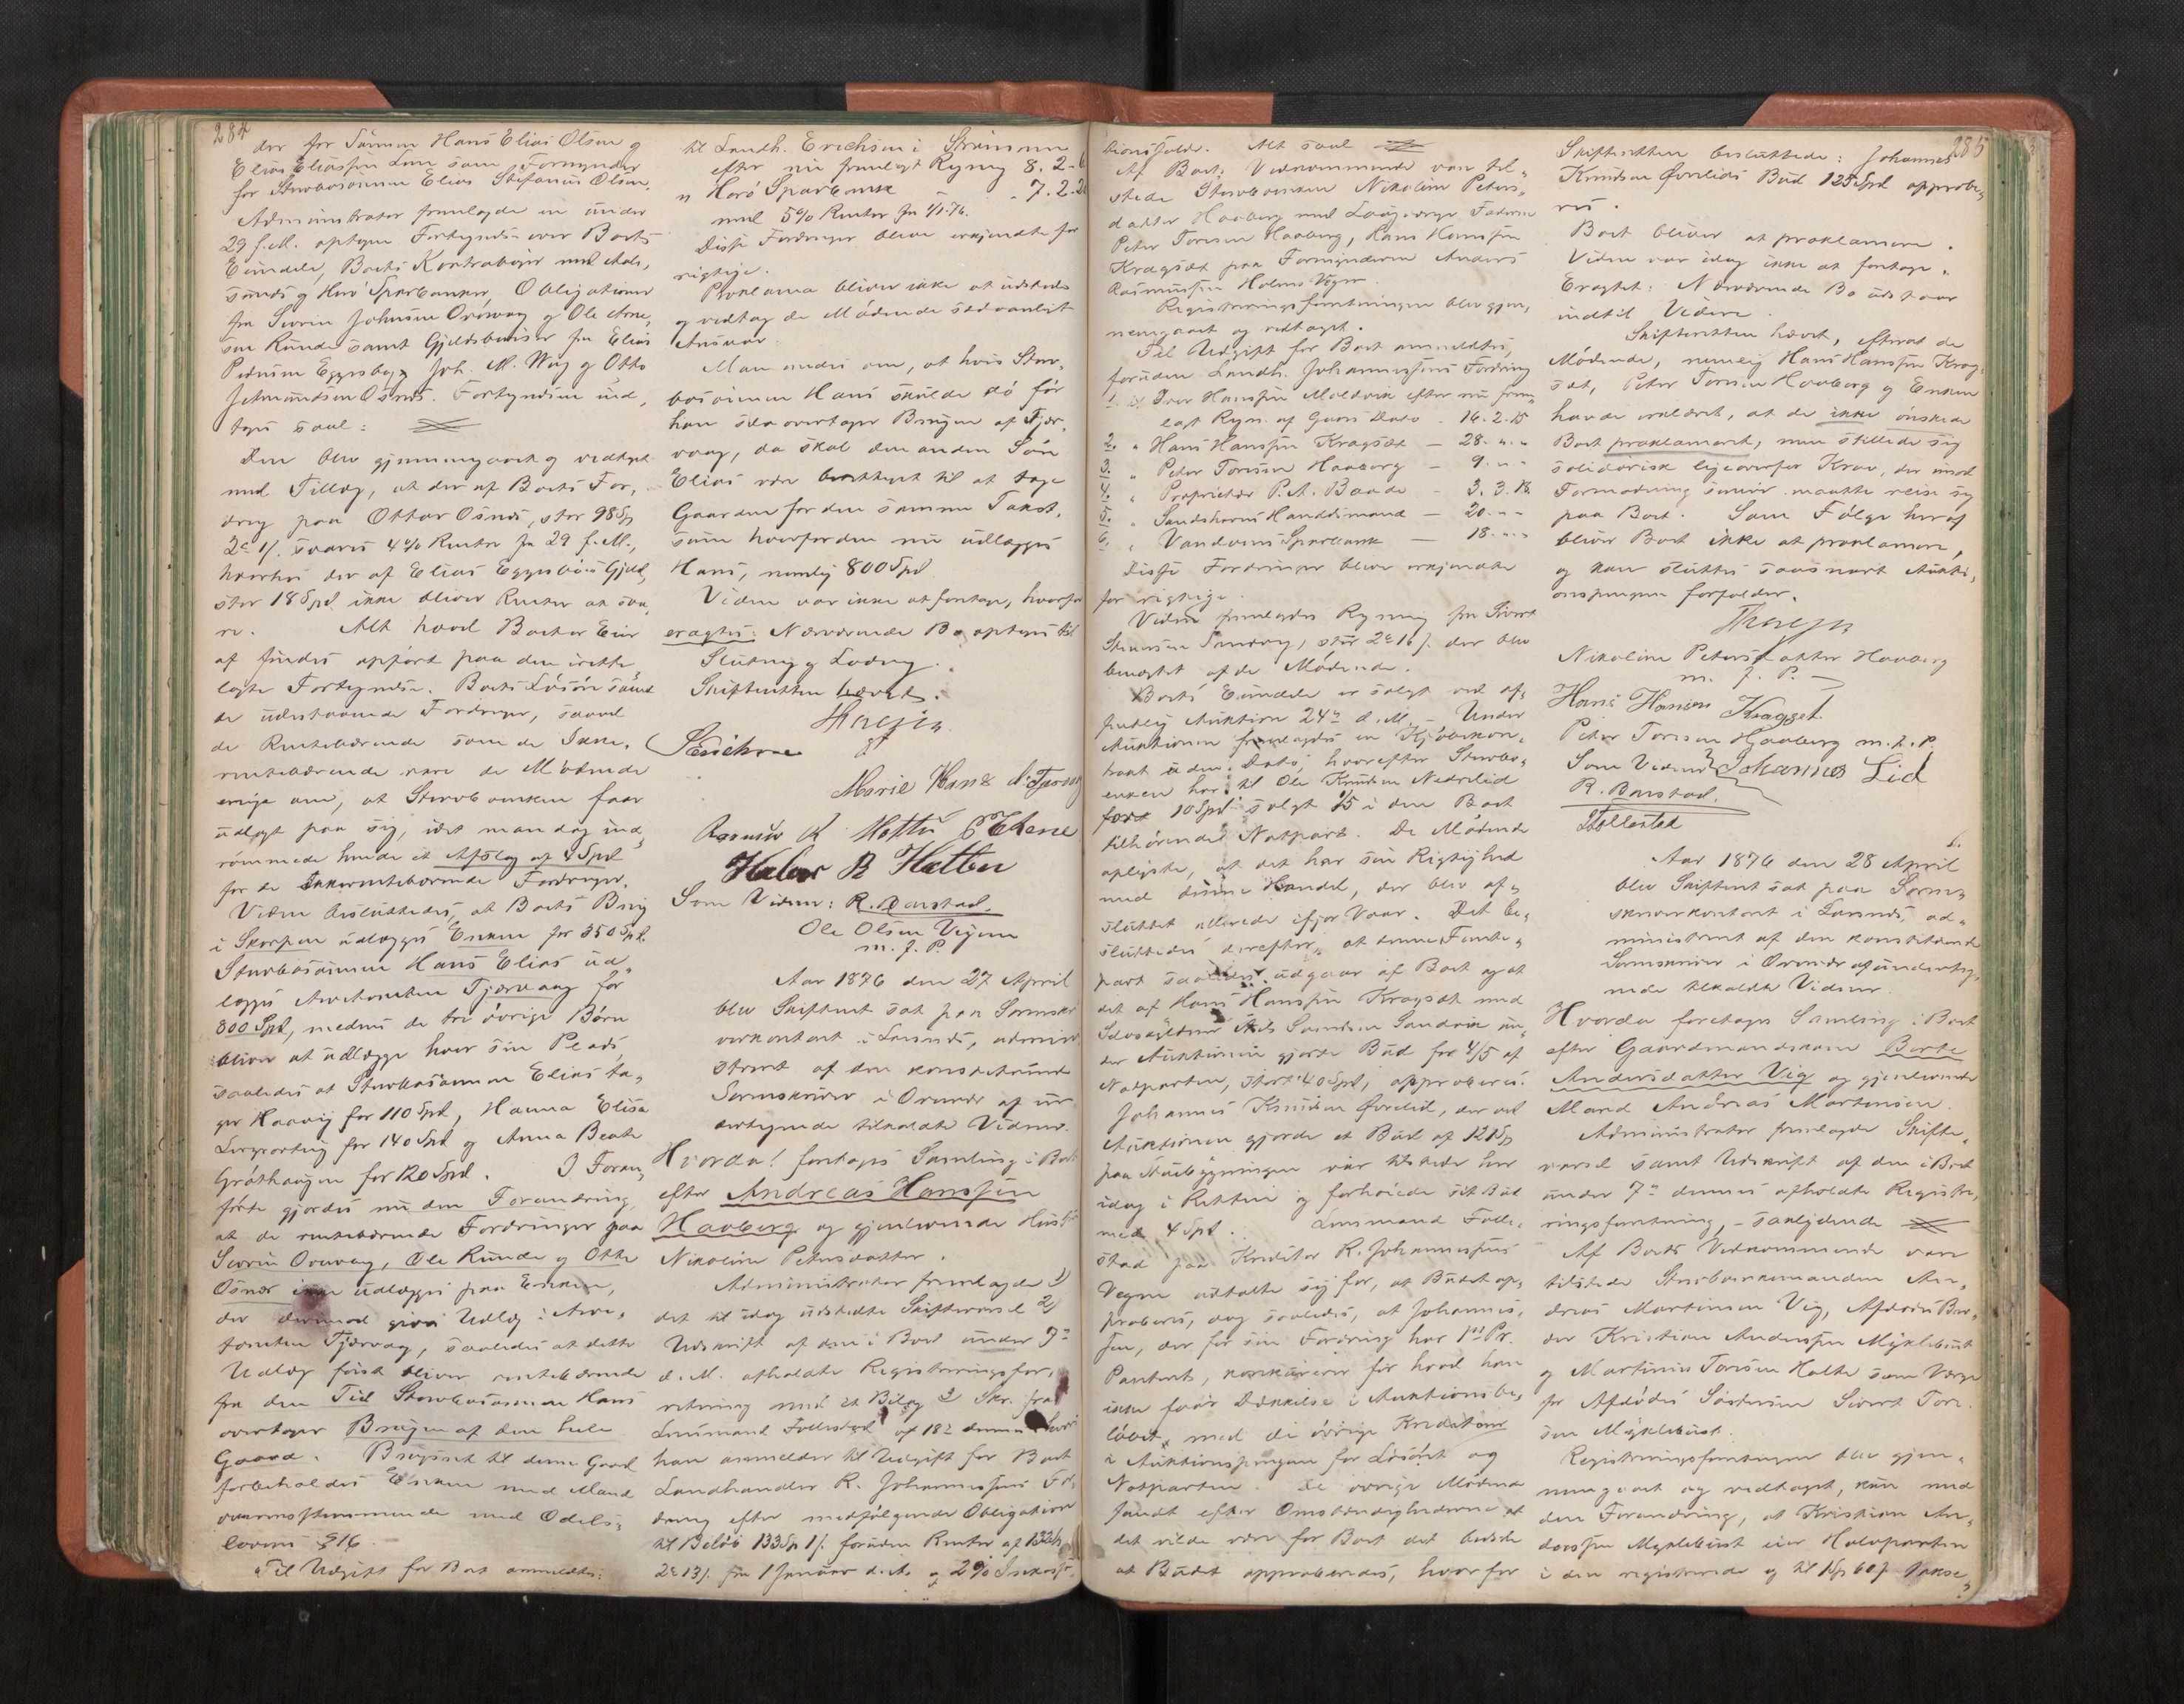 284
der for Sønnen Hans Elias Olsen og
Elias Eliassen som Formynder
for Stervbosønnen Elias Stefanus Olsen.
Administrator fremlagde en under
29 f.M. optagen Fortegnelse over Boets
Eiendele, Boets Kontrabøger med Aale,
sunds og Herø Sparbanker, Obligationer
fra Sivrin Johnsen Orevaag og Ole Arne,
sen Runde samt Gjeldsbeviser fra Elias
Pedersen Eggesbø, Joh. M. Wiig og Otto
Osnes. Fortegnelsen ind,
tages saal:
Den blev gjennemgaaet og vedtaget
med Tillæg, at der af Boets For,
dring paa Ottar Osnes, stor 98 Sp
2 svares 4% Renter fra 29 f.M.,
hvorhos der af Elias Eggesbøes Gjeld,
stor 18 Spd, ikke bliver Renter at sva,
re. Alt hvad Boet er Eier
af findes opført paa den irette
lagte Fortegnelse. Boets Løsøre samt
de udestaaende Fordringer, saavel
de Rentebærende som de Ikke,
rentebærende vare de Mødende
enige om, at Stervboenken faar
udlagt paa sig, idet man dog ind,
rømmede hende et Afslag af 4 Spd
for de Ikkerentebærende Fordringer.
Videre besluttedes, at Boets Brug
i Skorpen udlægges Enken for 350 Spd.
Stervbosønnen Hans Elias ud,
lægges Arvetomten Tjørvaag for
800 Spd, medens de tre øvrige Børn
bliver at udlægge hver sin Plads,
saaledes at Stervbosønnen Elias ta,
ger Haavig for 110 Spd, Hanna Elisa
for 140 Spd og Anna Beate
Grøthaugen for 120 Spd. I Foran,
førte gjordes nu den Forandring,
at de rentebærende Fordringer paa
Sivrin Orevaag, Ole Runde og Otto
Osnes ikke udlægges paa Enken,
der derimod gives Udlæg i Arve,
tomten Tjørvaag, saaledes at dette
Udlæg først bliver rentebærende
fra den Tid Stervbosønnen Hans
overtager Brugen af den hele
Gaard. Brugsret til denne Gaard
forbeholdes Enken med Mand
overensstemmende med Odels,
lovens §16.
Til Udgift for Boet anmeldtes:
til Landh. Erichsen i
efter nu fremlagt Regning 8. 2 -
" Herø Sparbank - 7. 2.
med 5% Renter fra 1/1 76.
Disse Fordringer bleve erkjendte for
rigtige.
Proklama bliver ikke at udstede
og vedtog de Mødende sædvanligt
Ansvar.
Man enedes om, at hvis Sterv,
bosønnen Hans skulde dø før
han overtager Brugen af Tjør,
vaag, da skal den anden Søn
Elias være berettiget til at tage
Gaarden for den samme Takst,
som hvorfor den nu udlægges
Hans, nemlig 800 Spd.
Videre var ikke at foretage, hvorfor
eragtes: Nærværende Bo optages til
Slutning og Lodning.
Skifteretten hævet.
Erichsen
Marie Hans d. Tjørvaag
Rasmus K Nottu
Som Vidner: R. Barstad.
Ole Olsen Vegsun
m. f. P.
Aar 1876 den 27 April
blev Skifteret sat paa Sorenskri
verkontoret i Larsnes, admini
streret af den konstituerede
Sorenskriver i Orene af un
dertegnede tilkaldte Vidner.
Hvorda! foretages Samling i Boet
efter Andreas Hanssen
Haaberg og gjenlevende Hustru
Nikoline Petersdatter.
Administrator fremlagde 1)
det til idag udstedte Skiftevarsel 2)
Udskrift af den i Boet under 7de
d. M. afholdte Registreringsfor,
retning med et Bilag 3) Skr. fra
Lensmand Follestad af 18de dennes
han anmelder til Udgift for Boet
Landhandler R. Johannessens For,
dring efter medfølgende Obligation
til Beløb 133 Sp 1 foruden Renter af 132
fra 1 Januar d. A. og 2%
285
tionsgebr. Alt saal
Af Boets Vedkommende var til,
stede Stervboenken Nikoline Peters,
datter Haaberg med Laugværge Faderen
Peter Toresen Haaberg, Hans Hanssen
Kragset paa Formynderen Anders
Rasmussen Holms Vegne.
Registreringsforretningen blev gjen,
nemgaaet og vedtaget.
Til Udgift for Boet anmeldtes,
foruden Landh. Johannessens Fordring
1. Iver Hanssen Moldvik efter nu frem
lagt Regn. af Gaars Dato - 16. 2. 15
2. " Hans Hanssen Kragset - 28. " "
3. " Peter Toresen Haaberg - 9. " "
4. " Proprietær P. A. Baade - 3. 3. 18.
5. " Sandshavns Handelsmand - 20. " "
6. " Vandvens Sparbank - 18. " "
Disse Fordringer bleve erkjendte
for rigtige.
Videre fremlagdes Regning fra Sivert
stor 2 16 der blev
benægtet af de Mødende.
Boets Eiendele er solgt ved of,
fentlig Auktion 24de d. M. Under
Auktionen fremlagdes en Kjøbekon,
trakt uden Dato, hvorefter Stervbo,
enken har til Ole Knudsen Nedrelid
for 10 Spd solgt 1/5 i den Boet
tilhørende Notpart. De Mødende
oplyste, at det har sin Rigtighed
med denne Handel, der blev af,
sluttet allerede ifjor Vaar. Det be,
sluttedes derefter, at denne Femte,
part saaledes udgaar af Boet og at
det af Hans Hanssen Kragset med
Selvskyldner Sandvik un,
der Auktionen gjorte Bud for 4/5 af
Notparten, stort 40 Spd, approberes.
Johannes Knudsen Øvrelid, der ved
Auktionen gjorde et Bud af 121 Sp
paa Husebygningen var tilstede her
idag i Retten og forhøiede sit Bud
med 4 Spd. Lensmand Folle,
stad paa Kreditor R. Johannessens
Vegne udtalte sig for, at Budet ap,
proberes, dog saaledes, at Johannes,
sen, der for sin Fordring har 1ste Pr.
Panteret, konkurrerer for hvad han
ikke faar Dækkelse i Auktionsbe,
løbet, med de øvrige Kreditorer
i Auktionspengene for Løsøret og
Notparten. De øvrige Mødende
fandt efter Omstændighederne at
det vilde være for Boet det bedste
at Budet approberedes, hvorfor
Skifteretten besluttede: Johannes
Knudsen Øvrelids Bud 125 Spd approbe,
res.
Boet bliver at proklamere.
Videre var idag ikke at foretage.
Eragtet: Nærværende Bo udstaar
indtil Videre.
Skifteretten hævet, efterat de
Mødende, nemlig Hans Hanssen Krag
set, Peter Toresen Haaberg og Enken
havde erklæret, at de ikke ønskede
Boet proklameret, men stillede sig
solidarisk ligeoverfor Krav, der imod
Formodning senere maatte reise sig
paa Boet. Som Følge heraf
bliver Boet ikke at proklamere,
og kan sluttes saasnart Aukti,
onspengene forfalder.
Nikoline Petersdatter Haaberg
m. f. P.
Hans Hansen Kragset
Peter Toresen Haaberg m. f. P.
Som Vidner Johannes Lid
R. Barstad.
Follestad
Aar 1876 den 28 April
blev Skifteret sat paa Soren,
skriverkontoret i Larsnes, ad,
ministreret af den konstituerede
Sorenskriver i Orene af underteg,
nede tilkaldte Vidner.
Hvorda foretages Samling i Boet
efter Gaardmandskone Berte
Andersdatter Vig og gjenlevende
Mand Andreas Martinsen.
Administrator fremlagde Skifte,
varsel samt Udskrift af den i Boet
under 7de dennes afholdte Registre,
ringsforretning, saalydende
Af Boets Vedkommende vare
tilstede Stervboenkemanden An,
dreas Martinsen Vig, Afdødes Bro,
der Kristian Andersen Myklebust
og Martinus Toresen Holte som Værge
for Afdødes Søstersøn Sivert Tore,
sen Myklebust.
Registreringsforretningen blev gjen,
nemgaaet og vedtaget, kun med
den Forandring, at Kristian An,
dersen Myklebust eier Halvparten
i den registrerede og til 1 Sp 60 s takse,